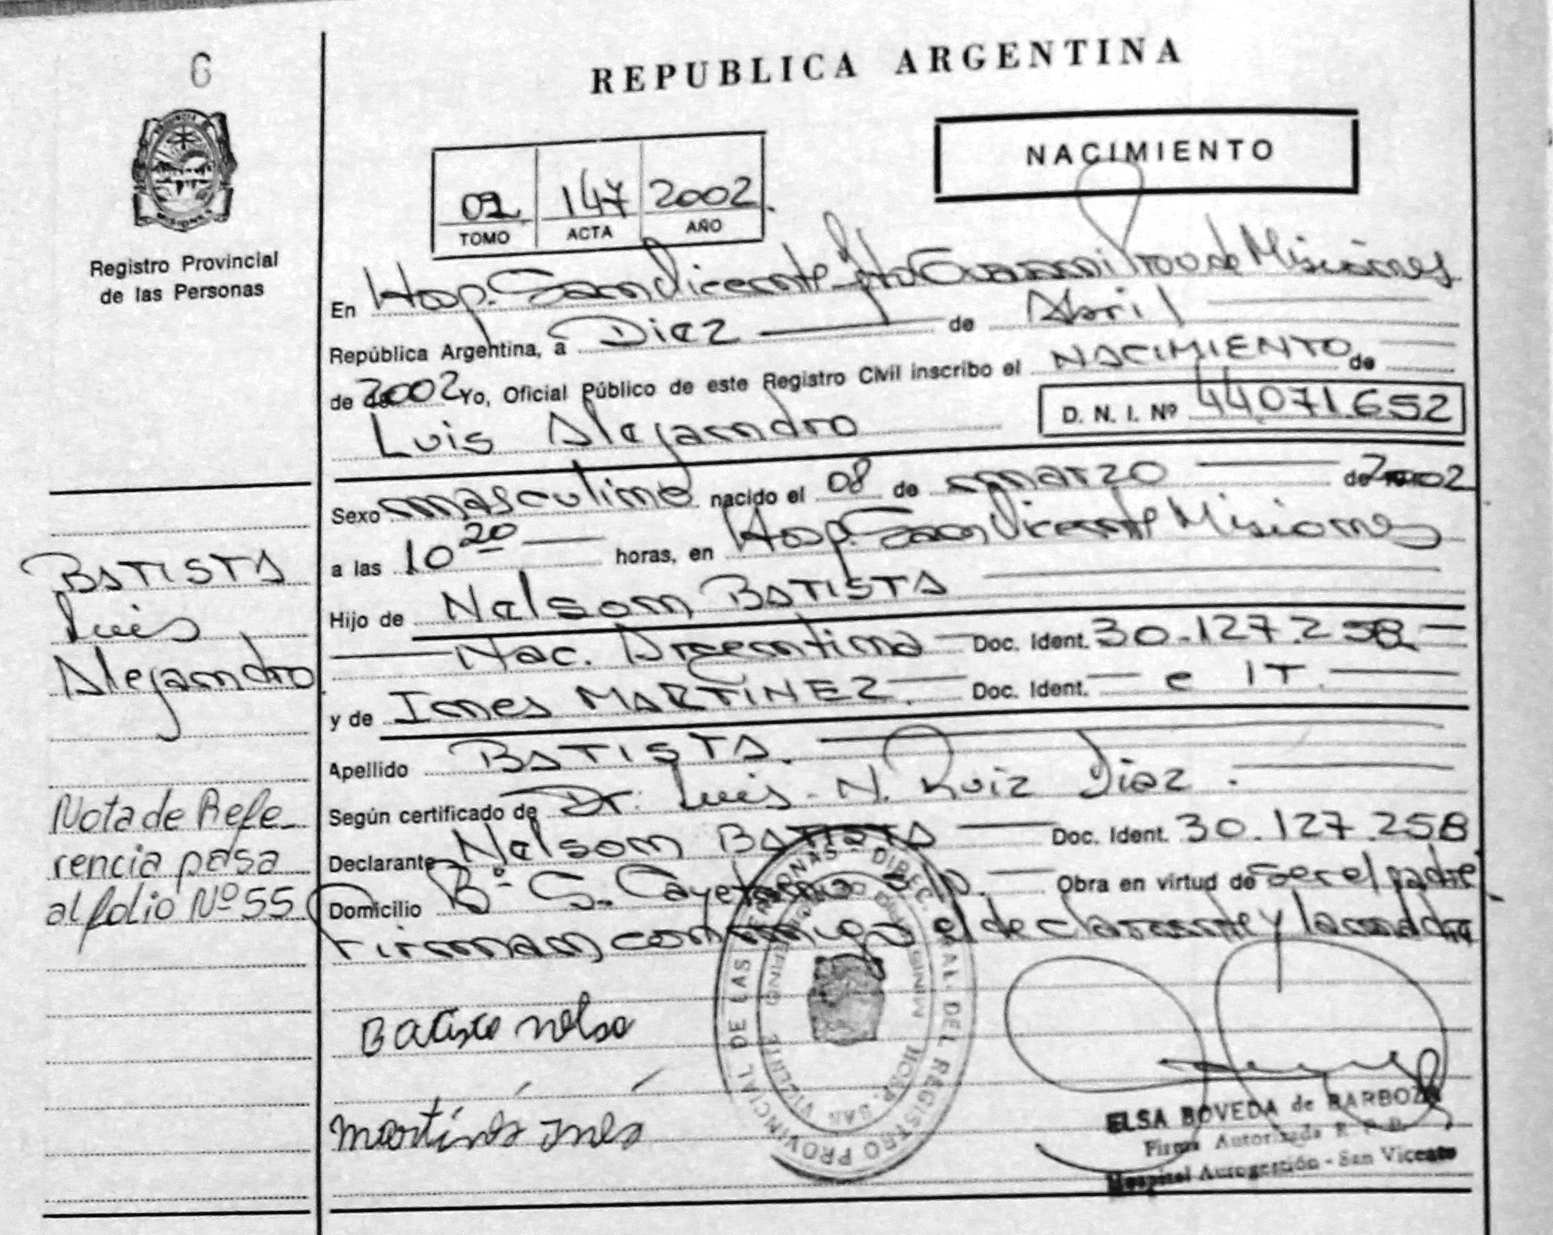 6
REPUBLICA ARGENTINA
NACIMIENTO
02 147 2002
TOMO ACTA AÑO
Registro Provincial
de las Personas
En Hosp. San Vicente Dto Guarani Prov de Misiones
República Argentina, a Diez de Abril
de 2002 Yo, Oficial Público de este Registro Civil inscribo el NACIMIENTO de
Luis Alejandro D. N. I. Nº 44071.652
Sexo masculino nacido el 08 de marzo de 2002
a las 10 20 horas, en Hosp. San Vicente Misiones
Hijo de Nelson BATISTA
Nac. Argentina Doc. Ident. 30.127.258
y de Ines MARTINEZ Doc. Ident. e IT.
Apellido BATISTA.
Según certificado de Dr. Luis N. Ruiz Diaz.
Declarante Nelson BATISTA Doc. Ident. 30.127.258
Domicilio Bº S. Cayetano S/N. Obra en virtud de ser el padre
Firman conmigo el declarante y la madre
BATISTA
Luis
Alejandro
Nota de Refe-
rencia pasa
al folio Nº 55
Batista Nelso
Martínes Inés
PROVINCIAL DE LAS PERSONAS - DIREC. GRAL. DEL REGISTRO
HOSP. SAN VICENTE
ELSA BOVEDA de BARBOZA
Firma Autorizada R. P. P.
Hospital Autogestión - San Vicente